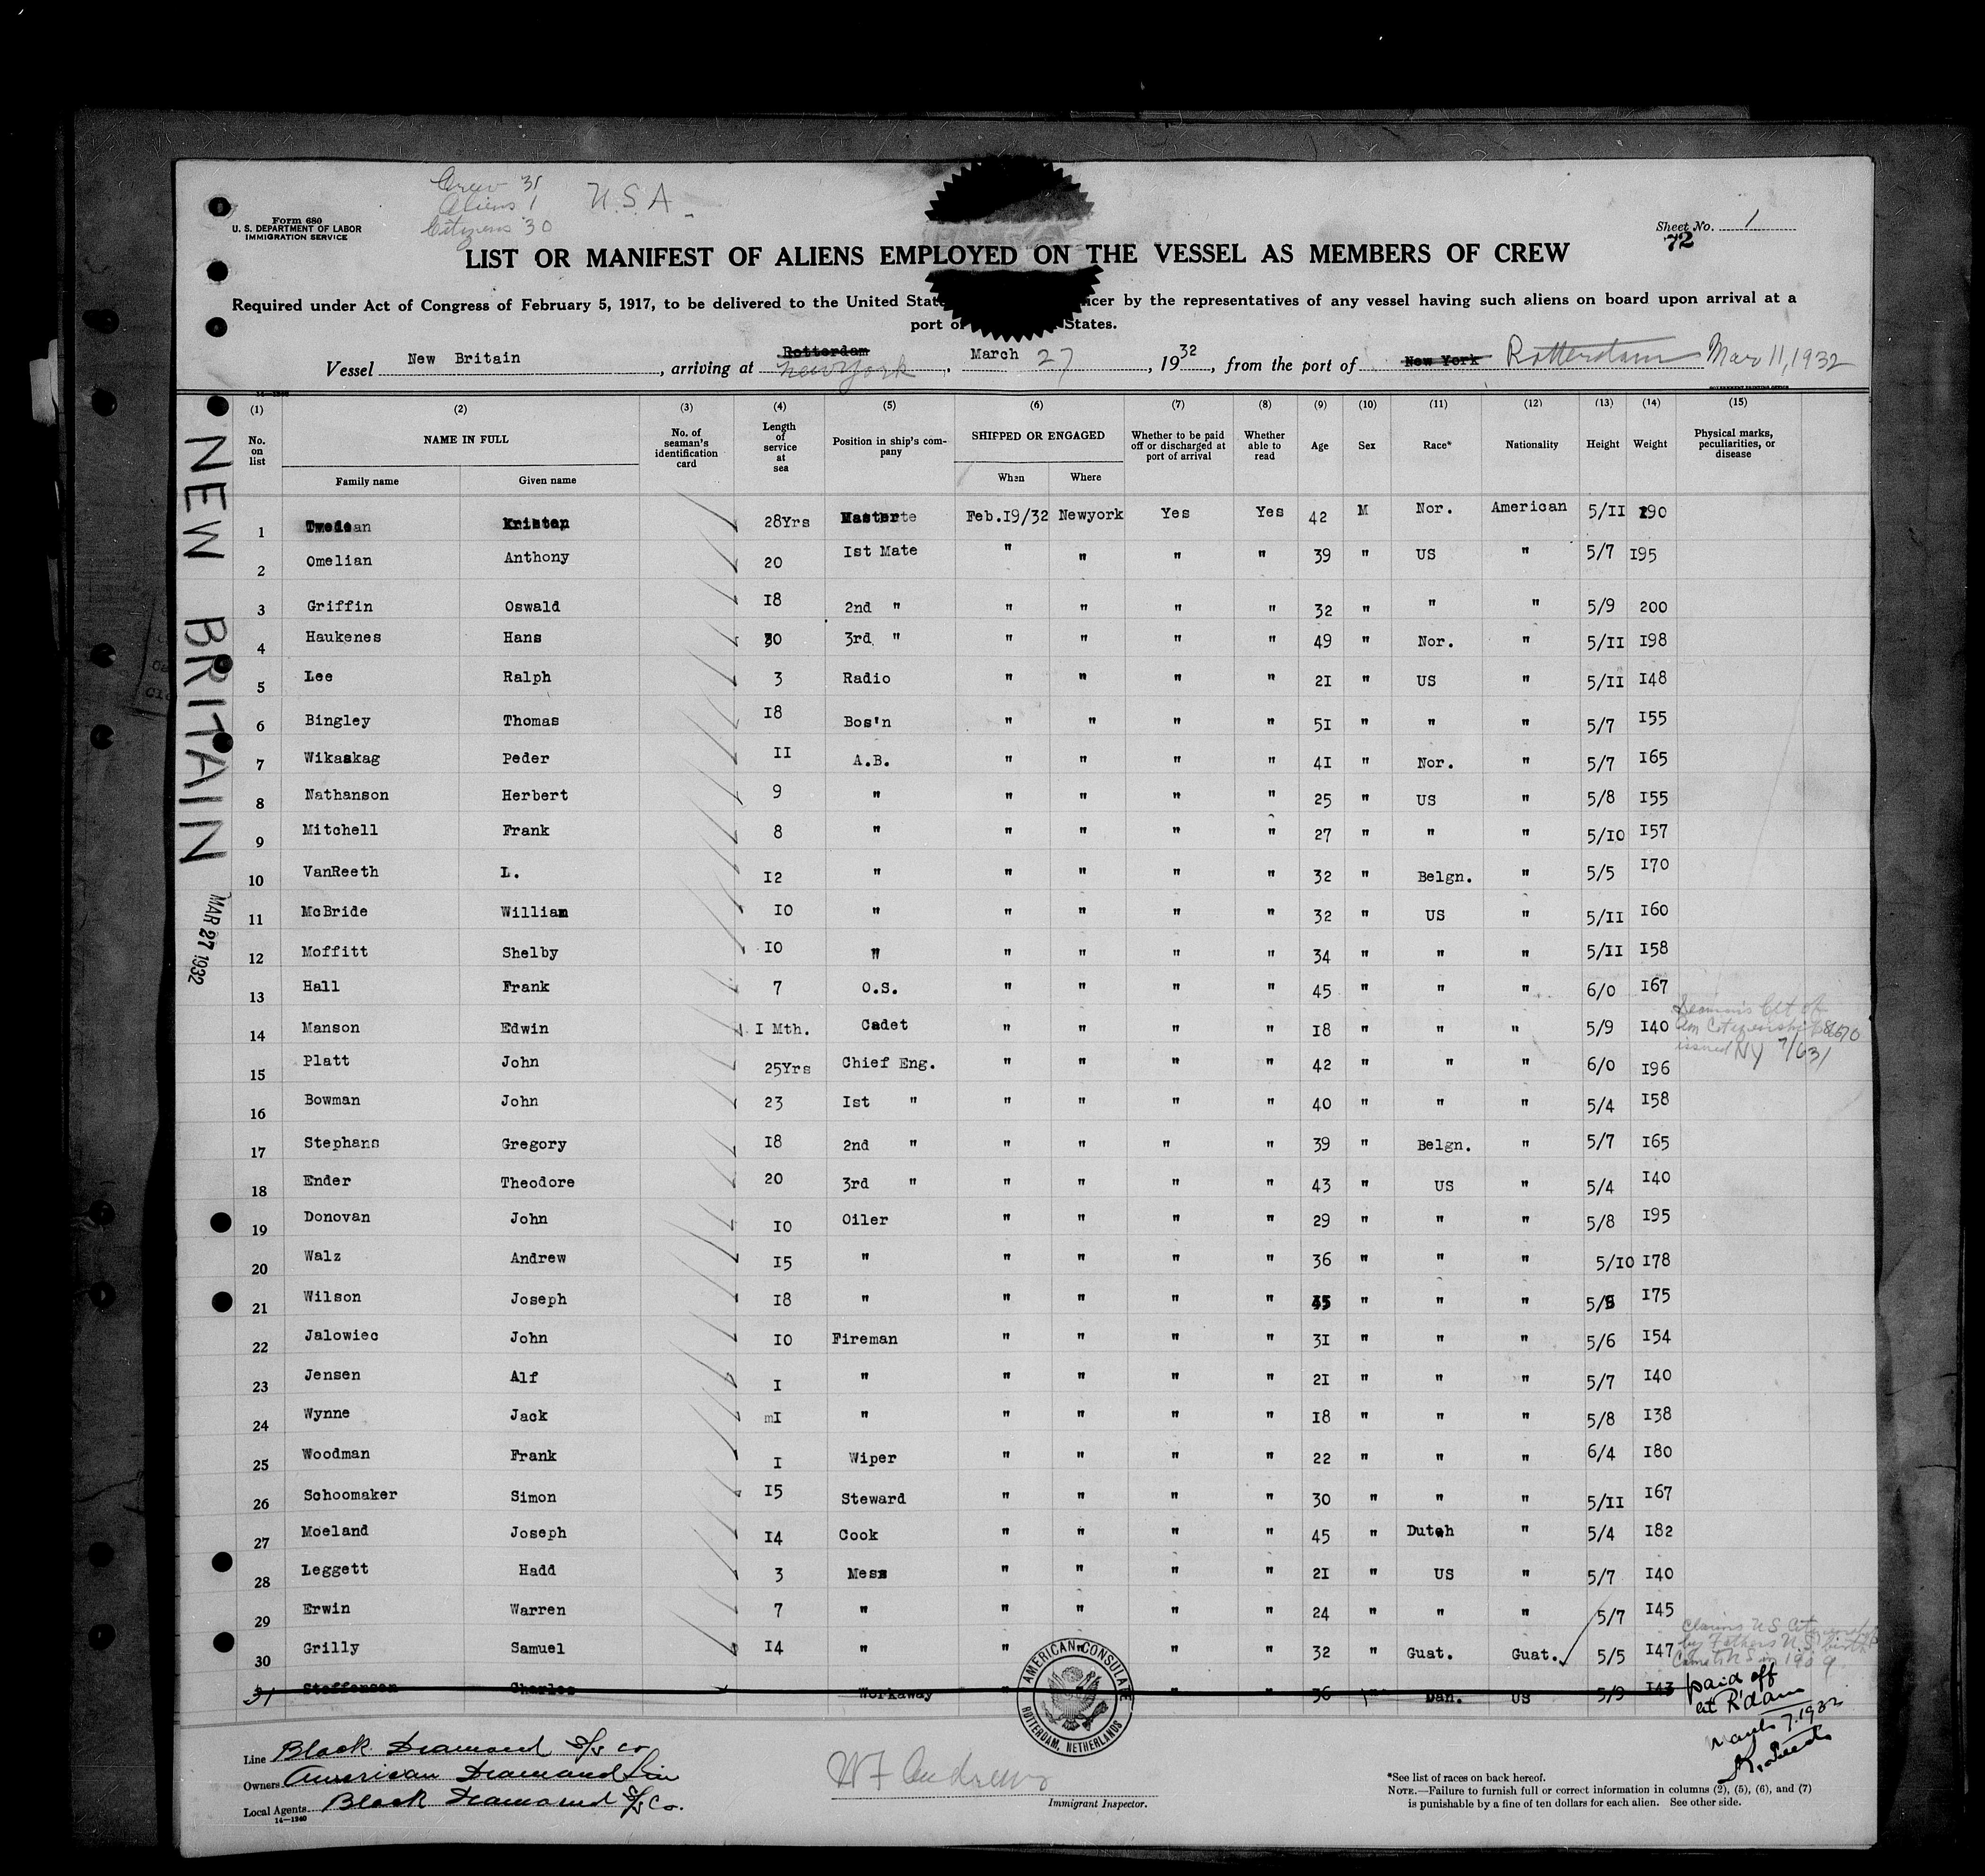 Crew 31
Aliens 1
Citizens 30
U.S.A.
Form 680
U. S. DEPARTMENT OF LABOR
IMMIGRATION SERVICE
Sheet No. 1
72
LIST OR MANIFEST OF ALIENS EMPLOYED ON THE VESSEL AS MEMBERS OF CREW
Required under Act of Congress of February 5, 1917, to be delivered to the United by the representatives of any vessel having such aliens on board upon arrival at a
port of States.
Vessel New Britain, arriving at Rotterdam New York, March 27, 1932, from the port of New York Rotterdam Mar 11, 1932
GOVERNMENT PRINTING OFFICE
(1) (2) (3) (4) (5) (6) (7) (8) (9) (10) (11) (12) (13) (14) (15)
No. on list NAME IN FULL Family name Given name No. of seaman's identification card Length of service at sea Position in ship's company SHIPPED OR ENGAGED When Where Whether to be paid off or discharged at port of arrival Whether able to read Age Sex Race* Nationality Height Weight Physical marks, peculiarities, or disease
1 28Yrs Master Feb.19/32 Newyork Yes Yes 42 M Nor. American 5/11 190
2 Omelian Anthony 20 1st Mate " " " " 39 " US " 5/7 195
3 Griffin Oswald 18 2nd " " " " " 32 " " " 5/9 200
4 Haukenes Hans 30 3rd " " " " " 49 " Nor. " 5/11 198
5 Lee Ralph 3 Radio " " " " 21 " US " 5/11 148
6 Bingley Thomas 18 Bos'n " " " " 51 " " " 5/7 155
7 Wikaskag Peder 11 A.B. " " " " 41 " Nor. " 5/7 165
8 Nathanson Herbert 9 " " " " " 25 " US " 5/8 155
9 Mitchell Frank 8 " " " " " 27 " " " 5/10 157
10 VanReeth L. 12 " " " " " 32 " Belgn. " 5/5 170
11 McBride William 10 " " " " " 32 " US " 5/11 160
12 Moffitt Shelby 10 " " " " " 34 " " " 5/11 158
13 Hall Frank 7 O.S. " " " " 45 " " " 6/0 167
14 Manson Edwin 1 Mth. Cadet " " " " 18 " " " 5/9 140 Seaman's Cft of Am Citizenship issued NY
15 Platt John 25Yrs Chief Eng. " " " " 42 " " " 6/0 196
16 Bowman John 23 1st " " " " " 40 " " " 5/4 158
17 Stephans Gregory 18 2nd " " " " " 39 " Belgn. " 5/7 165
18 Ender Theodore 20 3rd " " " " " 43 " US " 5/4 140
19 Donovan John 10 Oiler " " " " 29 " " " 5/8 195
20 Walz Andrew 15 " " " " " 36 " " " 5/10 178
21 Wilson Joseph 18 " " " " " " " " 175
22 Jalowiec John 10 Fireman " " " " 31 " " " 5/6 154
23 Jensen Alf 1 " " " " " 21 " " " 5/7 140
24 Wynne Jack m1 " " " " " 18 " " " 5/8 138
25 Woodman Frank 1 Wiper " " " " 22 " " " 6/4 180
26 Schoomaker Simon 15 Steward " " " " 30 " " " 5/11 167
27 Moeland Joseph 14 Cook " " " " 45 " Dutch " 5/4 182
28 Leggett Hadd 3 Mess " " " " 21 " US " 5/7 140
29 Erwin Warren 7 " " " " " 24 " " " 5/7 145
30 Grilly Samuel 14 " " " " " 32 " Guat. Guat. 5/5 147 Claims U S Citizenship by Fathers U.S. birth Came to U S in 1909
31 Steffensen Charles Workaway " " " 36 " Dan. US 5/9 143 paid off at R'dam March 7. 1932
AMERICAN CONSULATE
ROTTERDAM, NETHERLANDS
Line Black Diamond S/S Co
Owners American Diamond Line
Local Agents Black Diamond S/S Co.
14—1240
W F Andrews
Immigrant Inspector.
*See list of races on back hereof.
NOTE.—Failure to furnish full or correct information in columns (2), (5), (6), and (7)
is punishable by a fine of ten dollars for each alien. See other side.
NEW BRITAIN
MAR 27 1932